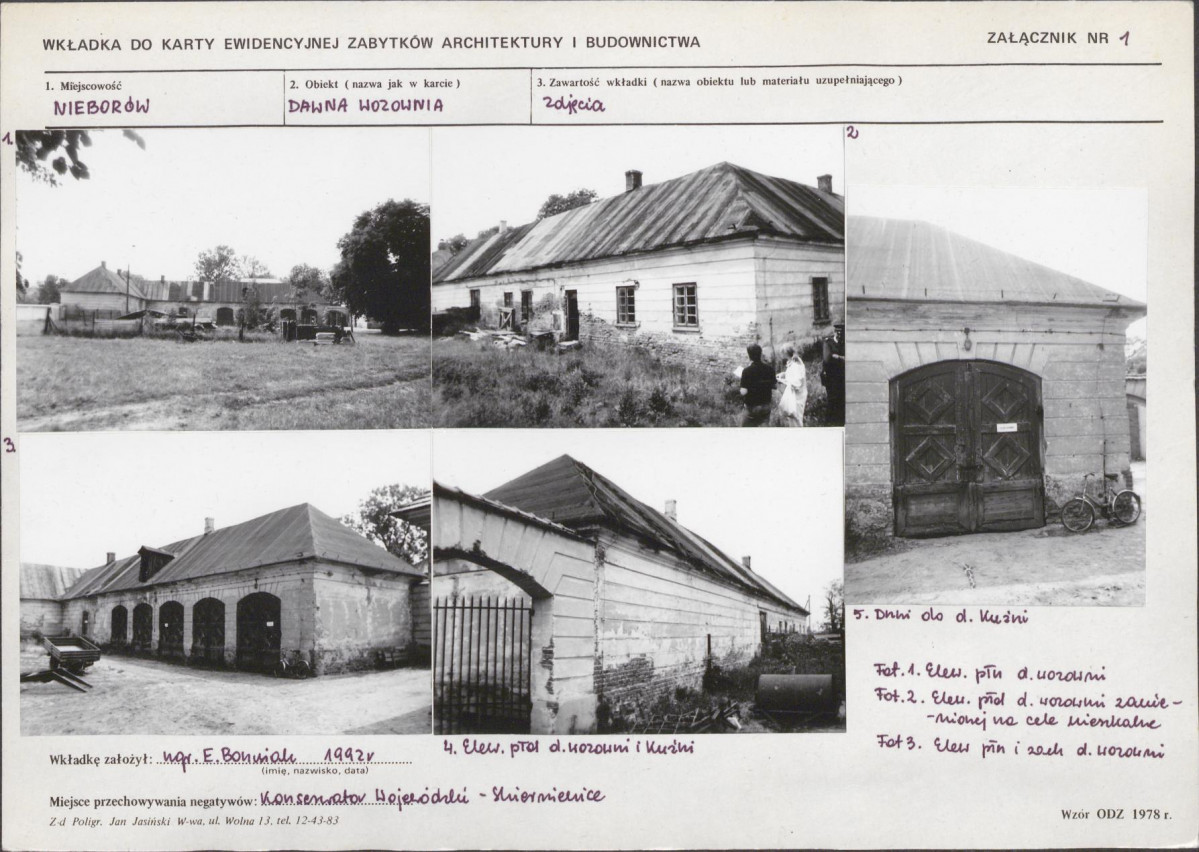 WKŁADKA DO KARTY EWIDENCYJNEJ ZABYTKÓW ARCHITEKTURY I BUDOWNICTWA
ZAŁĄCZNIK NR 1
1. Miejscowość
NIEBORÓW
2. Obiekt (nazwa jak w karcie)
DAWNA WOZOWNIA
3. Zawartość wkładki (nazwa obiektu lub materiału uzupełniającego)
zdjęcia
1.
2
3.
5. Drzwi do d. Kuźni
Fot. 1. Elew. płn d. wozowni
Fot. 2. Elew. płd d. wozowni zamie-
-nionej na cele mieszkalne
Fot 3. Elew płn i zach d. wozowni
4. Elew. płd d. wozowni i Kuźni
Wkładkę założył: mgr. E. 1992r
(imię, nazwisko, data)
Miejsce przechowywania negatywów: Konserwator Wojewódzki - Skierniewice
Z-d Poligr. Jan Jasiński W-wa, ul. Wolna 13, tel. 12-43-83
Wzór ODZ 1978 r.